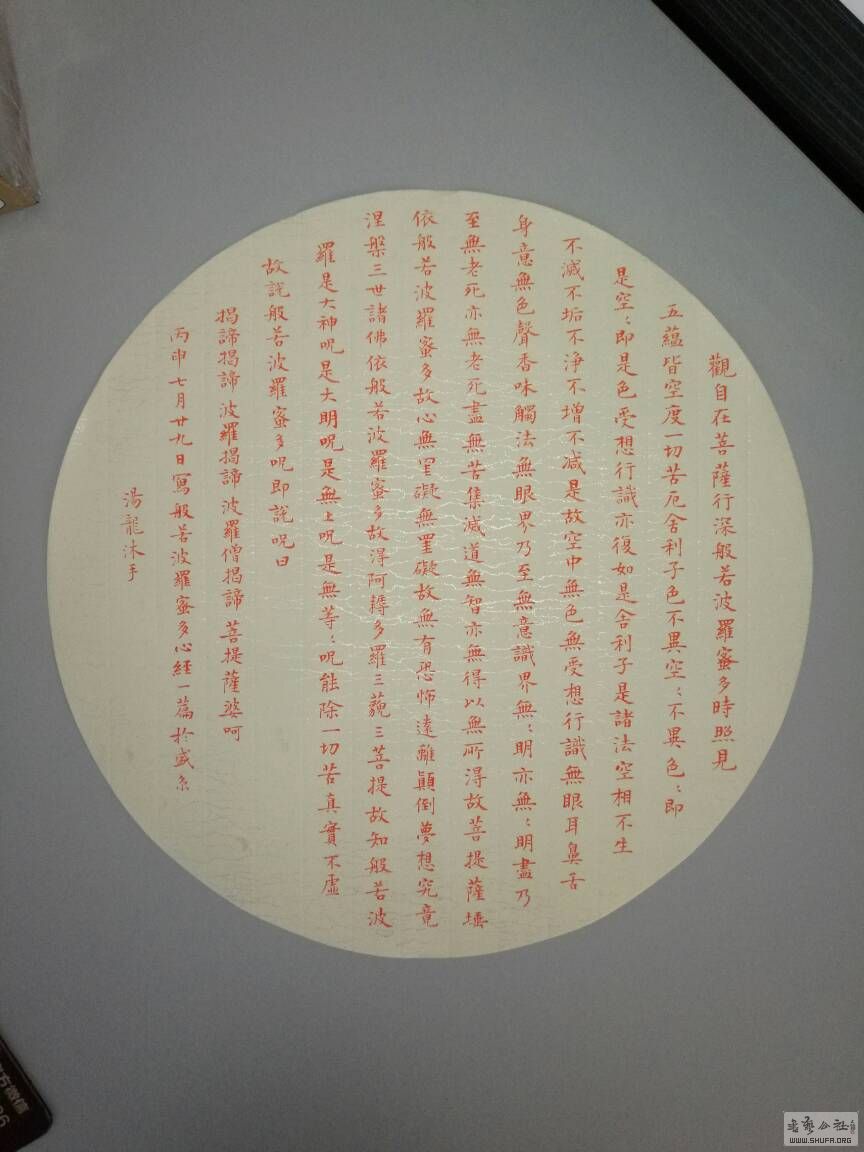 觀自在菩薩行深般若波羅蜜多時照見
五蘊皆空度一切苦厄舍利子色不異空：不異色：即
是空：即是色受想行識亦復如是舍利子是諸法空相不生
不滅不垢不淨不增不減是故空中無色無受想行識無眼耳鼻舌
身意無色聲香味觸法無眼界乃至無意識界無：明亦無：明盡乃
至無老死亦無老死盡無苦集滅道無智亦無得以無所得故菩提薩埵
依般若波羅蜜多故心無罣礙無罣礙故無有恐怖遠離顛倒夢想究竟
涅槃三世諸佛依般若波羅蜜多故得阿耨多羅三藐三菩提故知般若波
羅是大神呪是大明呪是無上呪是無等：呪能除一切苦真實不虛
故說般若波羅蜜多呪即說呪曰
揭諦揭諦 波羅揭諦 波羅僧揭諦 菩提薩婆呵
丙申七月廿九日寫般若波羅蜜多心經一篇於盛京
湯龍沐手
書藝公社
WWW.SHUFA.ORG